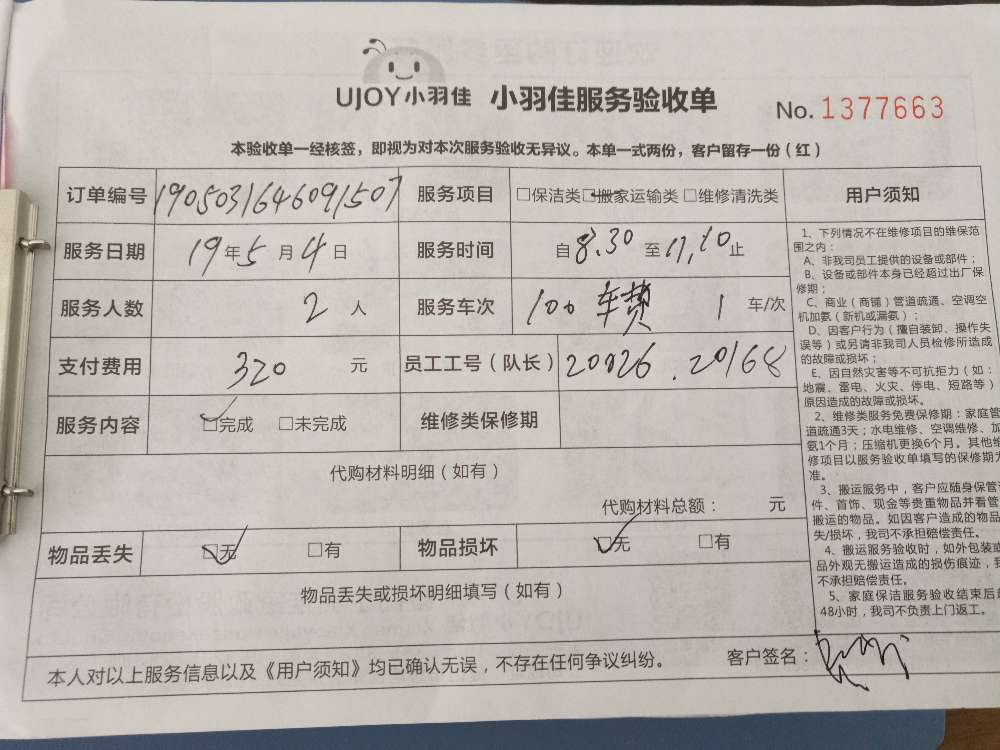 UJOY小羽佳 小羽佳服务验收单 No. 1377663
本验收单一经核签，即视为对本次服务验收无异议。本单一式两份，客户留存一份（红）
订单编号 1905031646091507 服务项目 □保洁类 □搬家运输类 □维修清洗类
服务日期 19年5月4日 服务时间 自8.30至11,10止
服务人数 2人 服务车次 100 车费 1 车/次
支付费用 320 元 员工工号（队长） 20026.20168
服务内容 □完成 □未完成 维修类保修期
代购材料明细（如有）
代购材料总额： 元
物品丢失 □无 □有 物品损坏 □无 □有
物品丢失或损坏明细填写（如有）
本人对以上服务信息以及《用户须知》均已确认无误，不存在任何争议纠纷。 客户签名：
用户须知
1、下列情况不在维修项目的维保范
围之内：
A、非我司员工提供的设备或部件；
B、设备或部件本身已经超过出厂保
修期；
C、商业（商铺）管道疏通、空调空
机加氨（新机或漏氨）；
D、因客户行为（擅自装卸、操作失
误等）或另请非我司人员检修所造成
的故障或损坏；
E、因自然灾害等不可抗拒力（如：
地震、雷电、火灾、停电、短路等）
原因造成的故障或损坏。
2、维修类服务免费保修期：家庭管
道疏通3天；水电维修、空调维修、加
氨1个月；压缩机更换6个月。其他维
修项目以服务验收单填写的保修期为
准。
3、搬运服务中，客户应随身保管
件、首饰、现金等贵重物品并看管
搬运的物品。如因客户造成的物品
失/损坏，我司不承担赔偿责任。
4、搬运服务验收时，如外包装或
品外观无搬运造成的损伤痕迹，我
不承担赔偿责任。
5、家庭保洁服务验收结束后超
48小时，我司不负责上门返工。